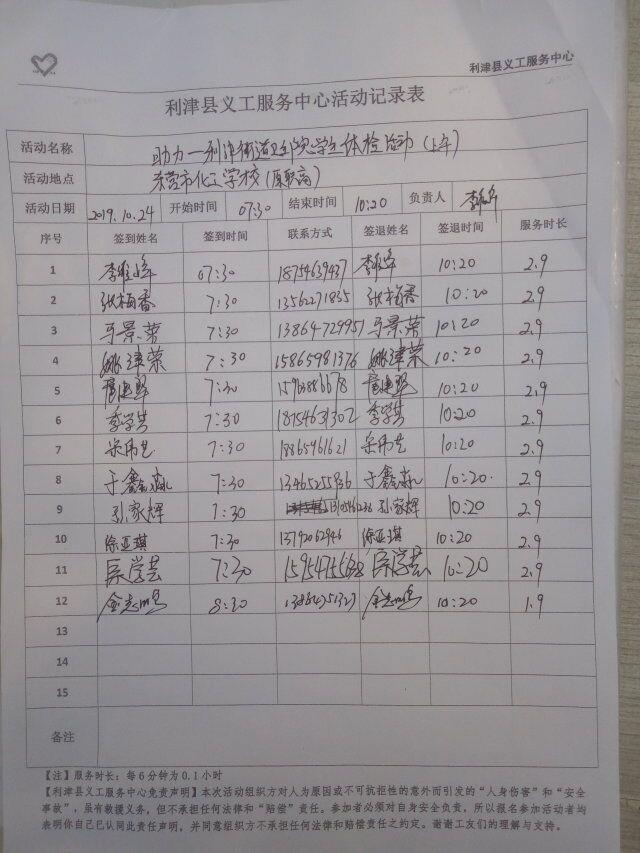 利津县义工服务中心
利津县义工服务中心活动记录表
活动名称 助力一利津街道卫生院学生体检活动（上午）
活动地点 东营市化工学校（原职高）
活动日期 2019.10.24 开始时间 07:30 结束时间 10:20 负责人
序号 签到姓名 签到时间 联系方式 签退姓名 签退时间 服务时长
1 07:30 18754639437 10:20 2.9
2 张梅香 7:30 13562271835 张梅香 10:20 2.9
3 马景荣 7:30 13864729951 马景荣 10:20 2.9
4 姚津荣 7:30 15865981376 姚津荣 10:20 2.9
5 7:30 10:20 2.9
6 李学其 7:30 18754631302 李学其 10:20 2.9
7 7:30 18865961621 10:20 2.9
8 于鑫淼 7:30 于鑫淼 10:20 2.9
9 孙家辉 7:30 孙家辉 10:20 2.9
10 徐亚琪 7:30 13792062946 徐亚琪 10:20 2.9
11 吴学芸 7:30 吴学芸 10:20 2.9
12 金志鸣 8:30 金志鸣 10:20 1.9
13
14
15
备注
【注】服务时长：每6分钟为0.1小时
【利津县义工服务中心免责声明】本次活动组织方对人为原因或不可抗拒性的意外而引发的“人身伤害”和“安全
事故”，虽有救援义务，但不承担任何法律和“赔偿”责任。参加者必须对自身安全负责，所以报名参加活动者均
表明你自己已认同此责任声明，并同意组织方不承担任何法律和赔偿责任之约定。谢谢工友们的理解与支持。